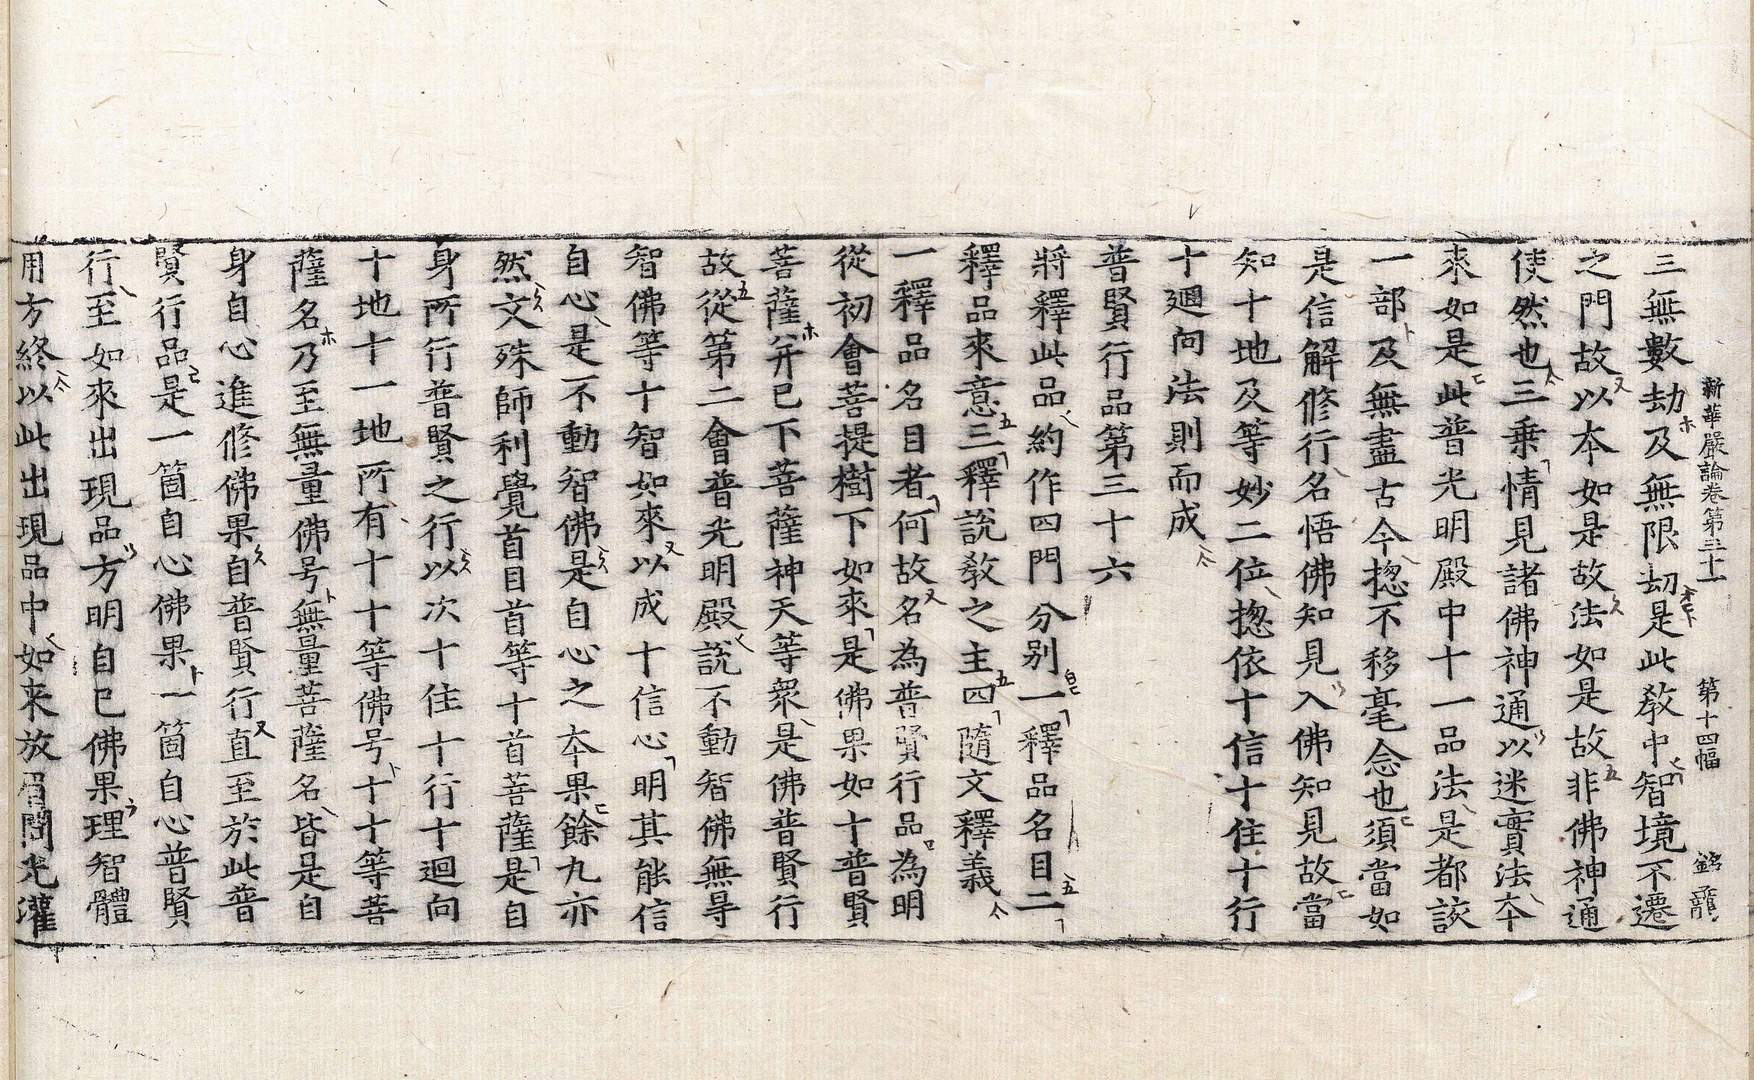 新華嚴論卷第三十一　第十四幅
三無數劫及無限劫是此敎中智境不遷
之門故以本如是故法如是故非佛神通
使然也三乗情見諸佛神通以迷實法本
來如是此普光明殿中十一品法是都該
一部及無盡古今揔不移毫念也須當如
是信解修行名悟佛知見入佛知見故當
知十地及等妙二位揔依十信十住十行
十迴向法則而成
普賢行品第三十六
將釋此品約作四門分别一釋品名目二
釋品來意三釋說敎之主四隨文釋義
一釋品名目者何故名為普賢行品為明
從初會菩提樹下如來是佛果如十普賢
菩薩并已下菩薩神天等衆是佛普賢行
故從第二會普光明殿說不動智佛無㝵
智佛等十智如來以成十信心明其能信
自心是不動智佛是自心之本果餘九亦
然文殊師利覺首目首等十首菩薩是自
身所行普賢之行以次十住十行十迴向
十地十一地所有十十等佛号十十等菩
薩名乃至無量佛号無量菩薩名皆是自
身自心進修佛果自普賢行直至於此普
賢行品是一箇自心佛果一箇自心普賢
行至如來出現品方明自已佛果理智體
用方終以此出現品中如来放眉間光灌